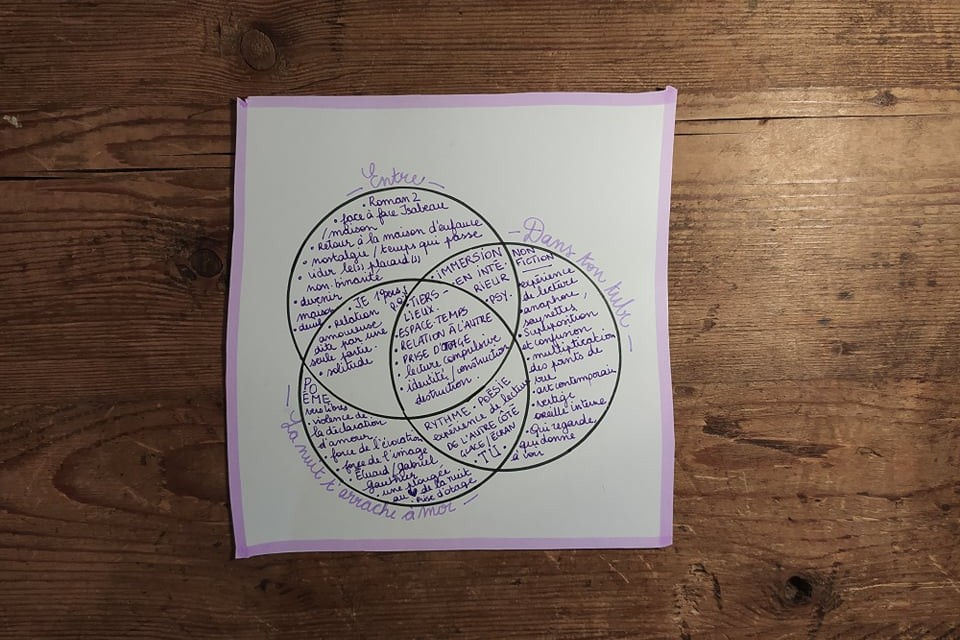 Entre
• Roman 2
• face à face Isabeau
/ maison
• Retour à la maison d'enfance
• nostalgie / temps qui passe
• vider le(s) placard(s)
non. binarité
• devenir
maison
• deuil
• JE 1 pers /
• relation
amoureuse
dite par une
seule partie.
• solitude
• IMMERSION
• EN INTÉ-
RIEUR
• PSY.
• TIERS -
LIEUX -
• ESPACE-TEMPS
• RELATION À L'AUTRE
• PRISE D'OTAGE
• lecture compulsive
• identité / construction
destruction.
Dans ton tube
NON
FICTION
expérience
de lecture
• anaphore,
saynettes,
• Superposition
et confusion
• multiplication
des points de
vue
• art contemporain
• vertige
oreille interne
• Qui regarde,
qui donne
à voir
RYTHME • POÉSIE
expérience de lecture
DE L'AUTRE CÔTÉ
GLACE / ÉCRAN
• TU •
PO
ÈME
vers libres
• violence de
la déclaration
d'amour
• force de l'évocation
• force de l'image
• Eluard / gabriel
gauthier
• une plongée
au ♥ de la nuit
• Prise d'otage
La nuit t'arrache à moi